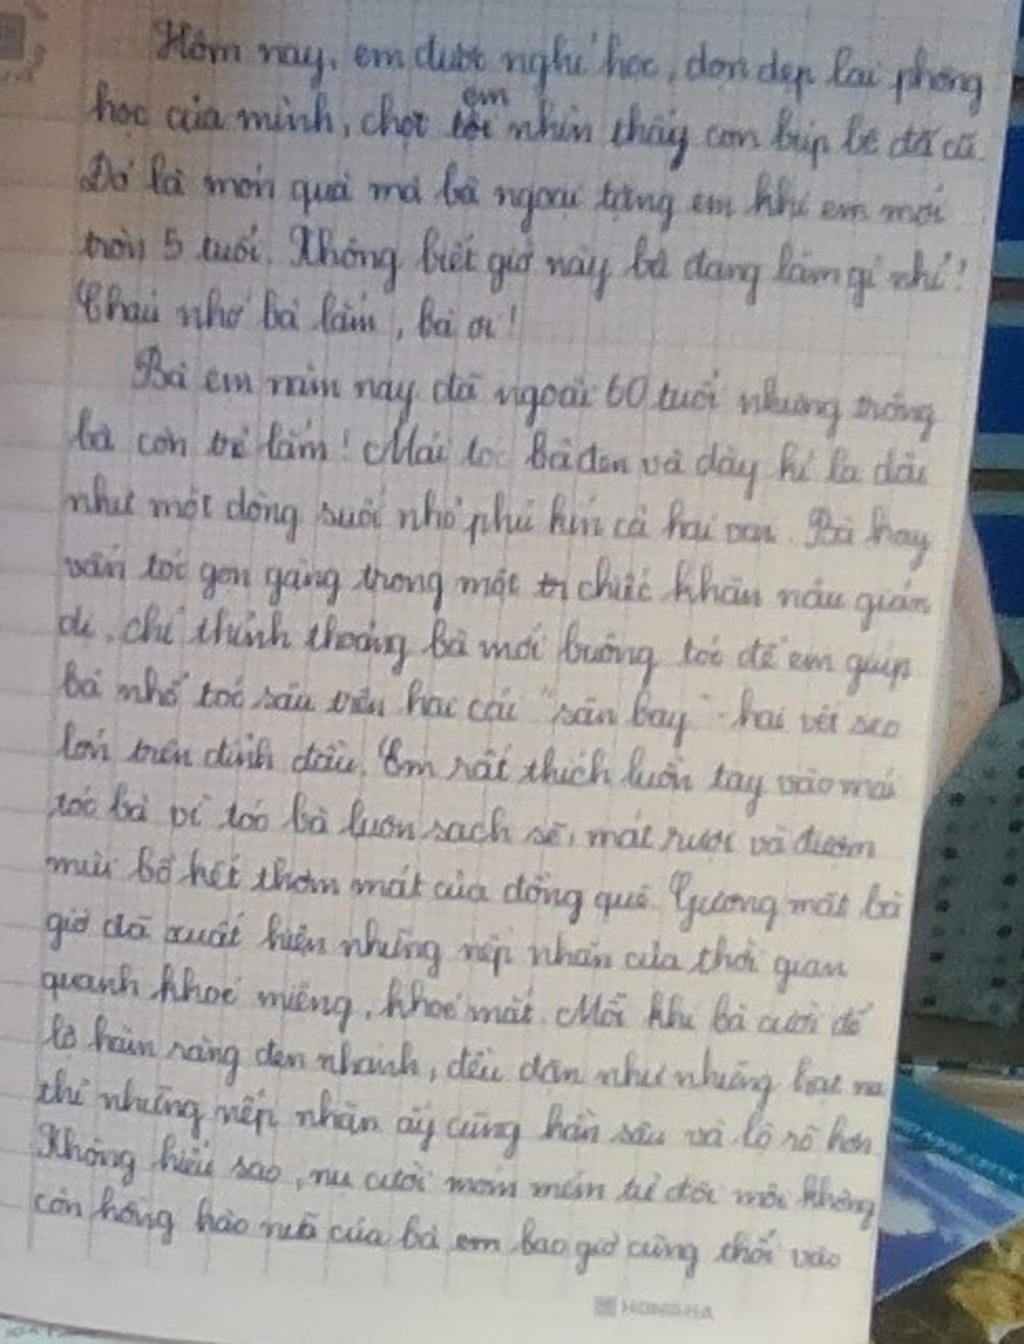 Hôm nay, em được nghỉ học, dọn dẹp lại phòng
học của mình, chợt em nhìn thấy con búp bê đã cũ.
Đó là món quà mà bà ngoại tặng em khi em mới
tròn 5 tuổi. Không biết giờ này bà đang làm gì nhỉ?
Cháu nhớ bà lắm, bà ơi!
Bà em năm nay đã ngoài 60 tuổi nhưng trông
bà còn trẻ lắm! Mái tóc bà đen và dày kì lạ dài
như một dòng suối nhỏ phủ kín cả hai vai. Bà hay
vấn tóc gọn gàng trong một chiếc khăn nâu giản
dị, chỉ thỉnh thoảng bà mới buông tóc để em giúp
bà nhổ tóc sâu trên hai cái "sân bay" - hai vết sẹo
lớn trên đỉnh đầu. Em rất thích luồn tay vào mái
tóc bà vì tóc bà luôn sạch sẽ, mát rượi và đượm
mùi bồ kết thơm mát của đồng quê. Gương mặt bà
giờ đã xuất hiện những nếp nhăn của thời gian
quanh khoé miệng, khoé mắt. Mỗi khi bà cười để
lộ hàm răng đen nhánh, đều đặn như những hạt na
thì những nếp nhăn ấy cũng hằn sâu và lộ rõ hơn.
Không hiểu sao, nụ cười móm mém từ đôi môi không
còn hồng hào nữa của bà em bao giờ cũng thổi vào
HONG HA